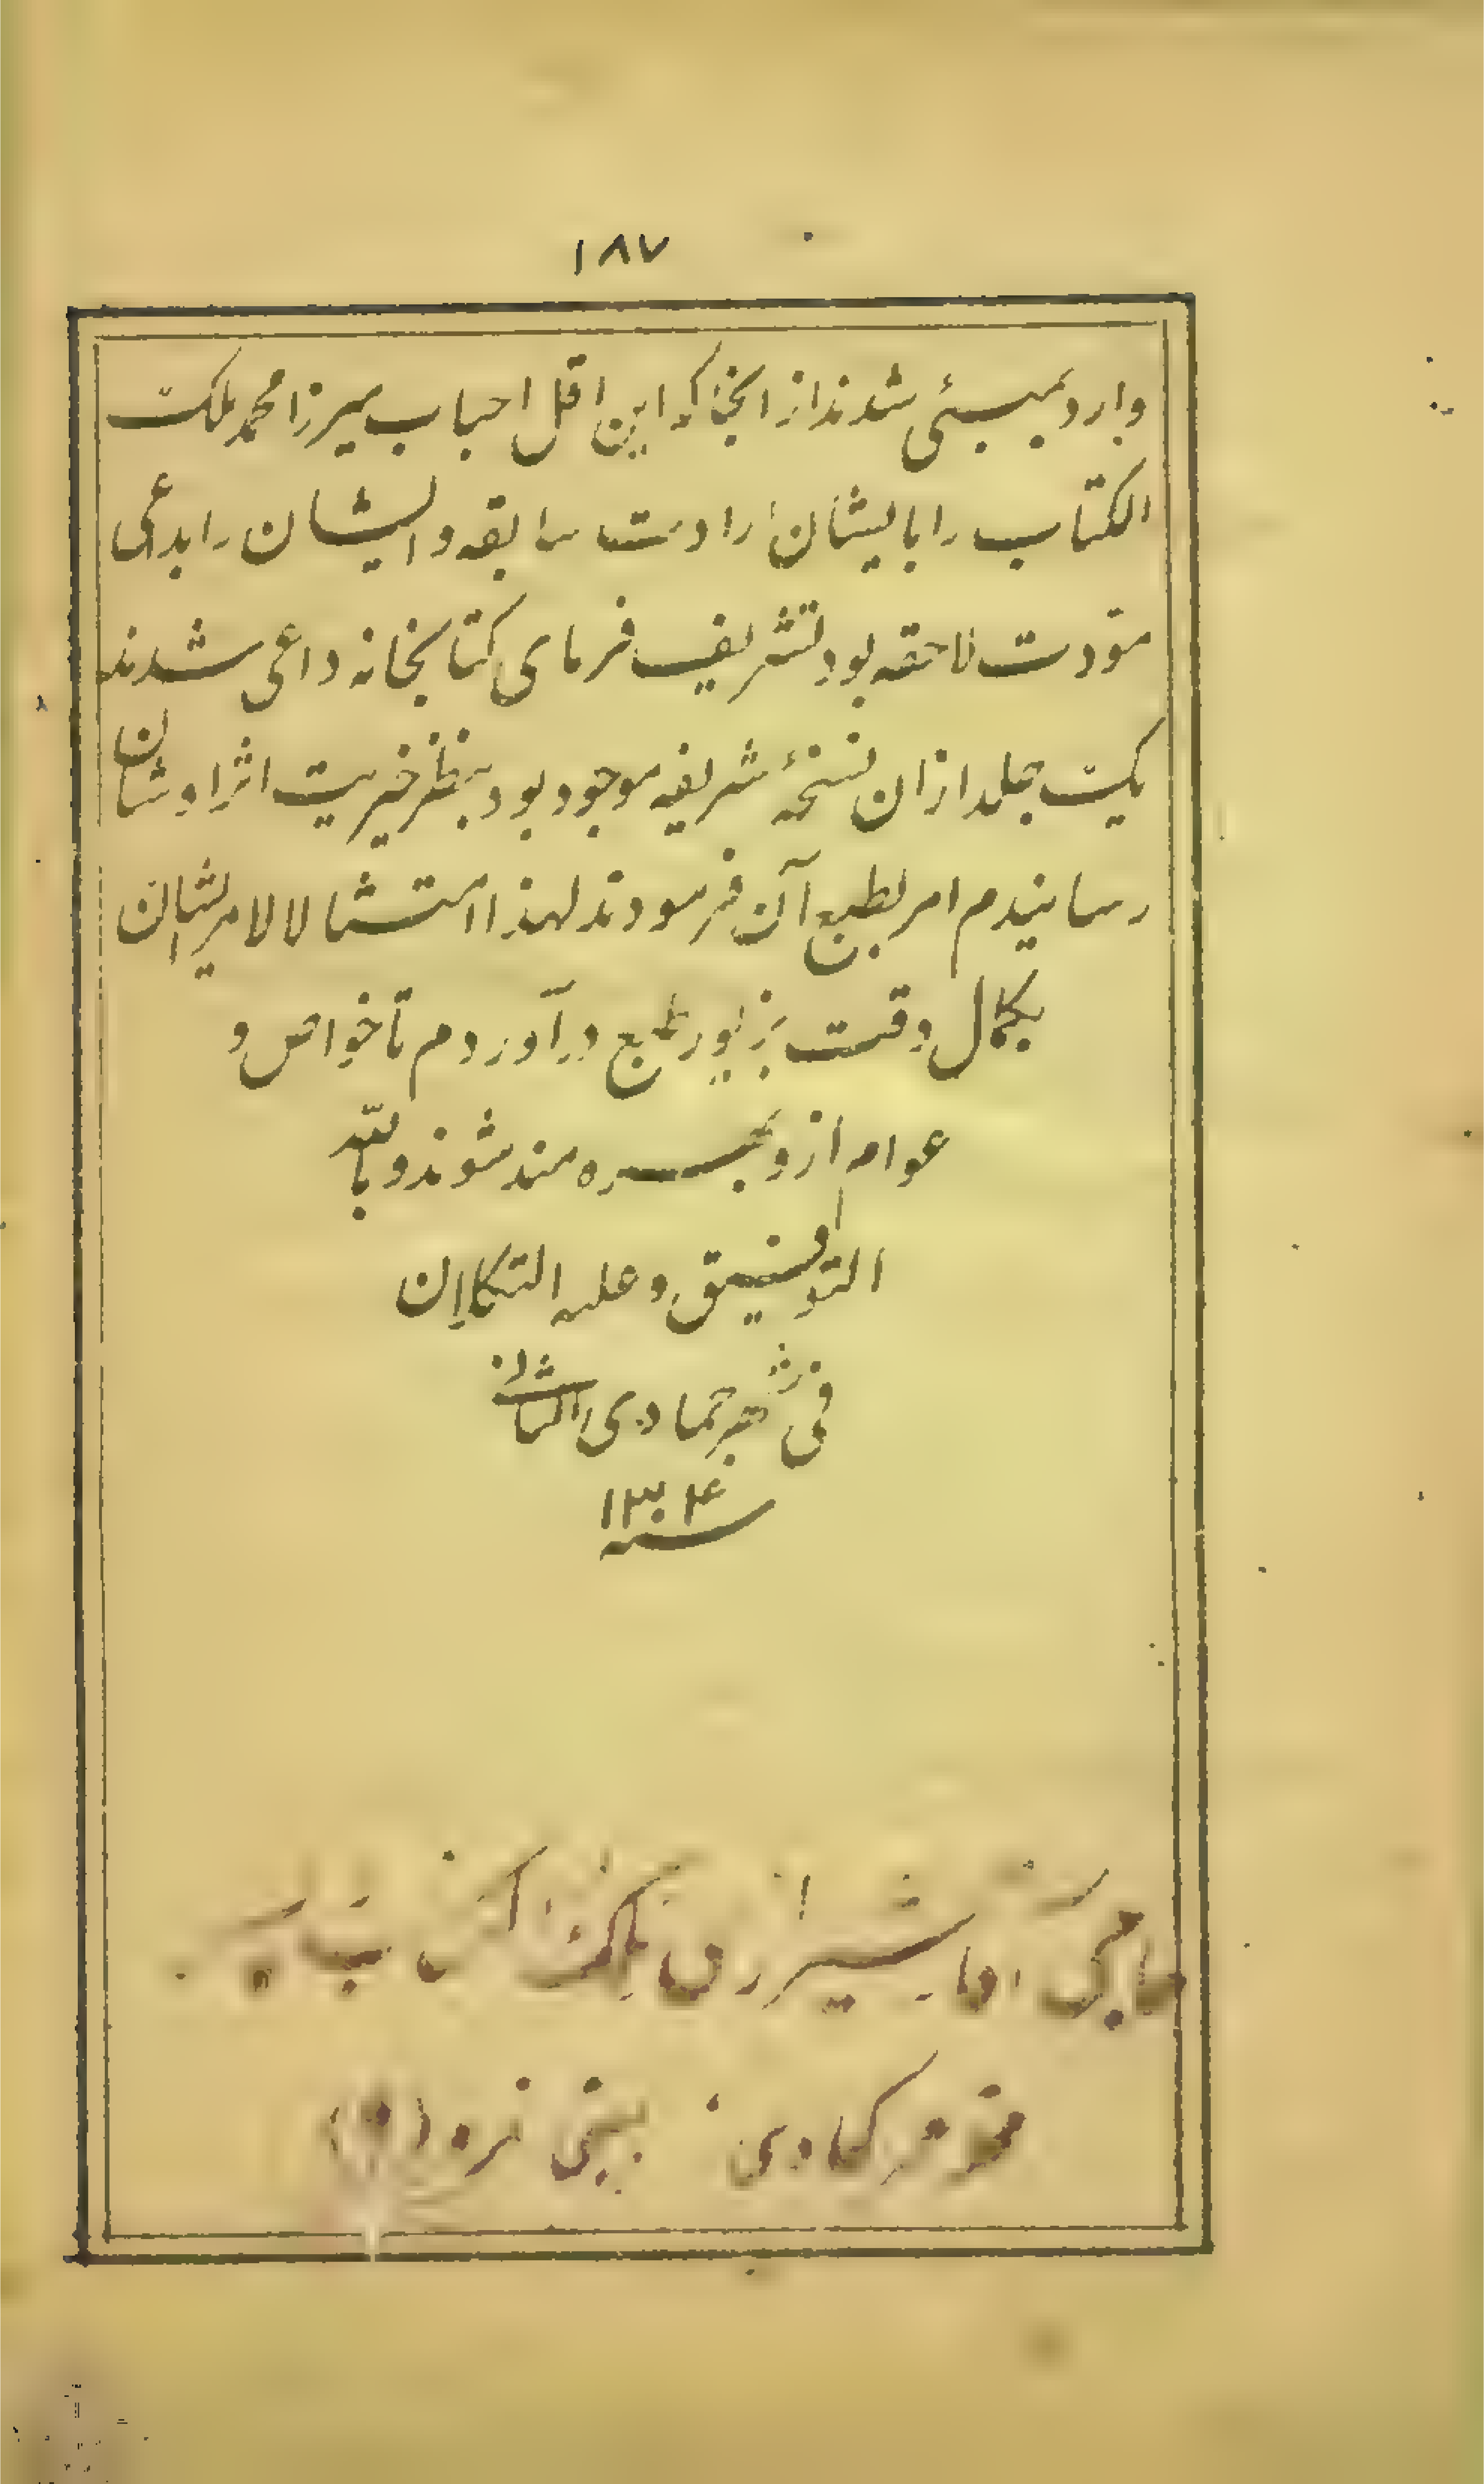 ١٨٧
وارد بمبیئی شدند از انجا که این اقل احباب میرزا محمد ملک
الکتاب را بایشان ارادت سابقه و ایشان را بداعی
مودت لاحقه بود تشریف فرمای کتابخانه داعی شدند
یک جلد ازان نسخهٔ شریفه موجود بود بنظر خیریت اثر ایشان
رسانیدم امر بطبع آن فرمودند لهذا امتثالا لامر ایشان
بکمال دقت بزیور طبع درآوردم تا خواص و
عوام ازو بهره مند شوند و بالله
التوفیق و علیه التکلان
فی شهر جمادی الثانی
سنه ۱۳۰۴
شیرازی ملک
بمبئی نمره